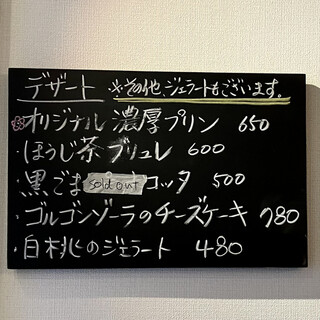 デザート ※その他、ジェラートもございます。
オリジナル濃厚プリン 650
・ほうじ茶ブリュレ 600
・黒ごま sold out コッタ 500
・ゴルゴンゾーラのチーズケーキ 780
・白桃のジェラート 480